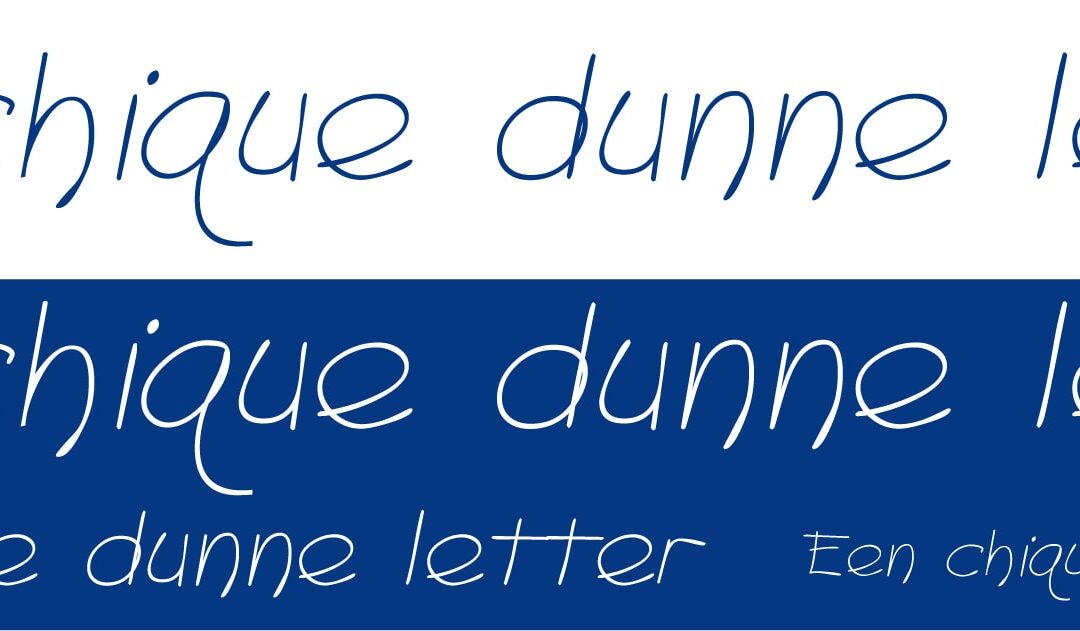 chique dunne le
chique dunne le
e dunne letter Een chiqu